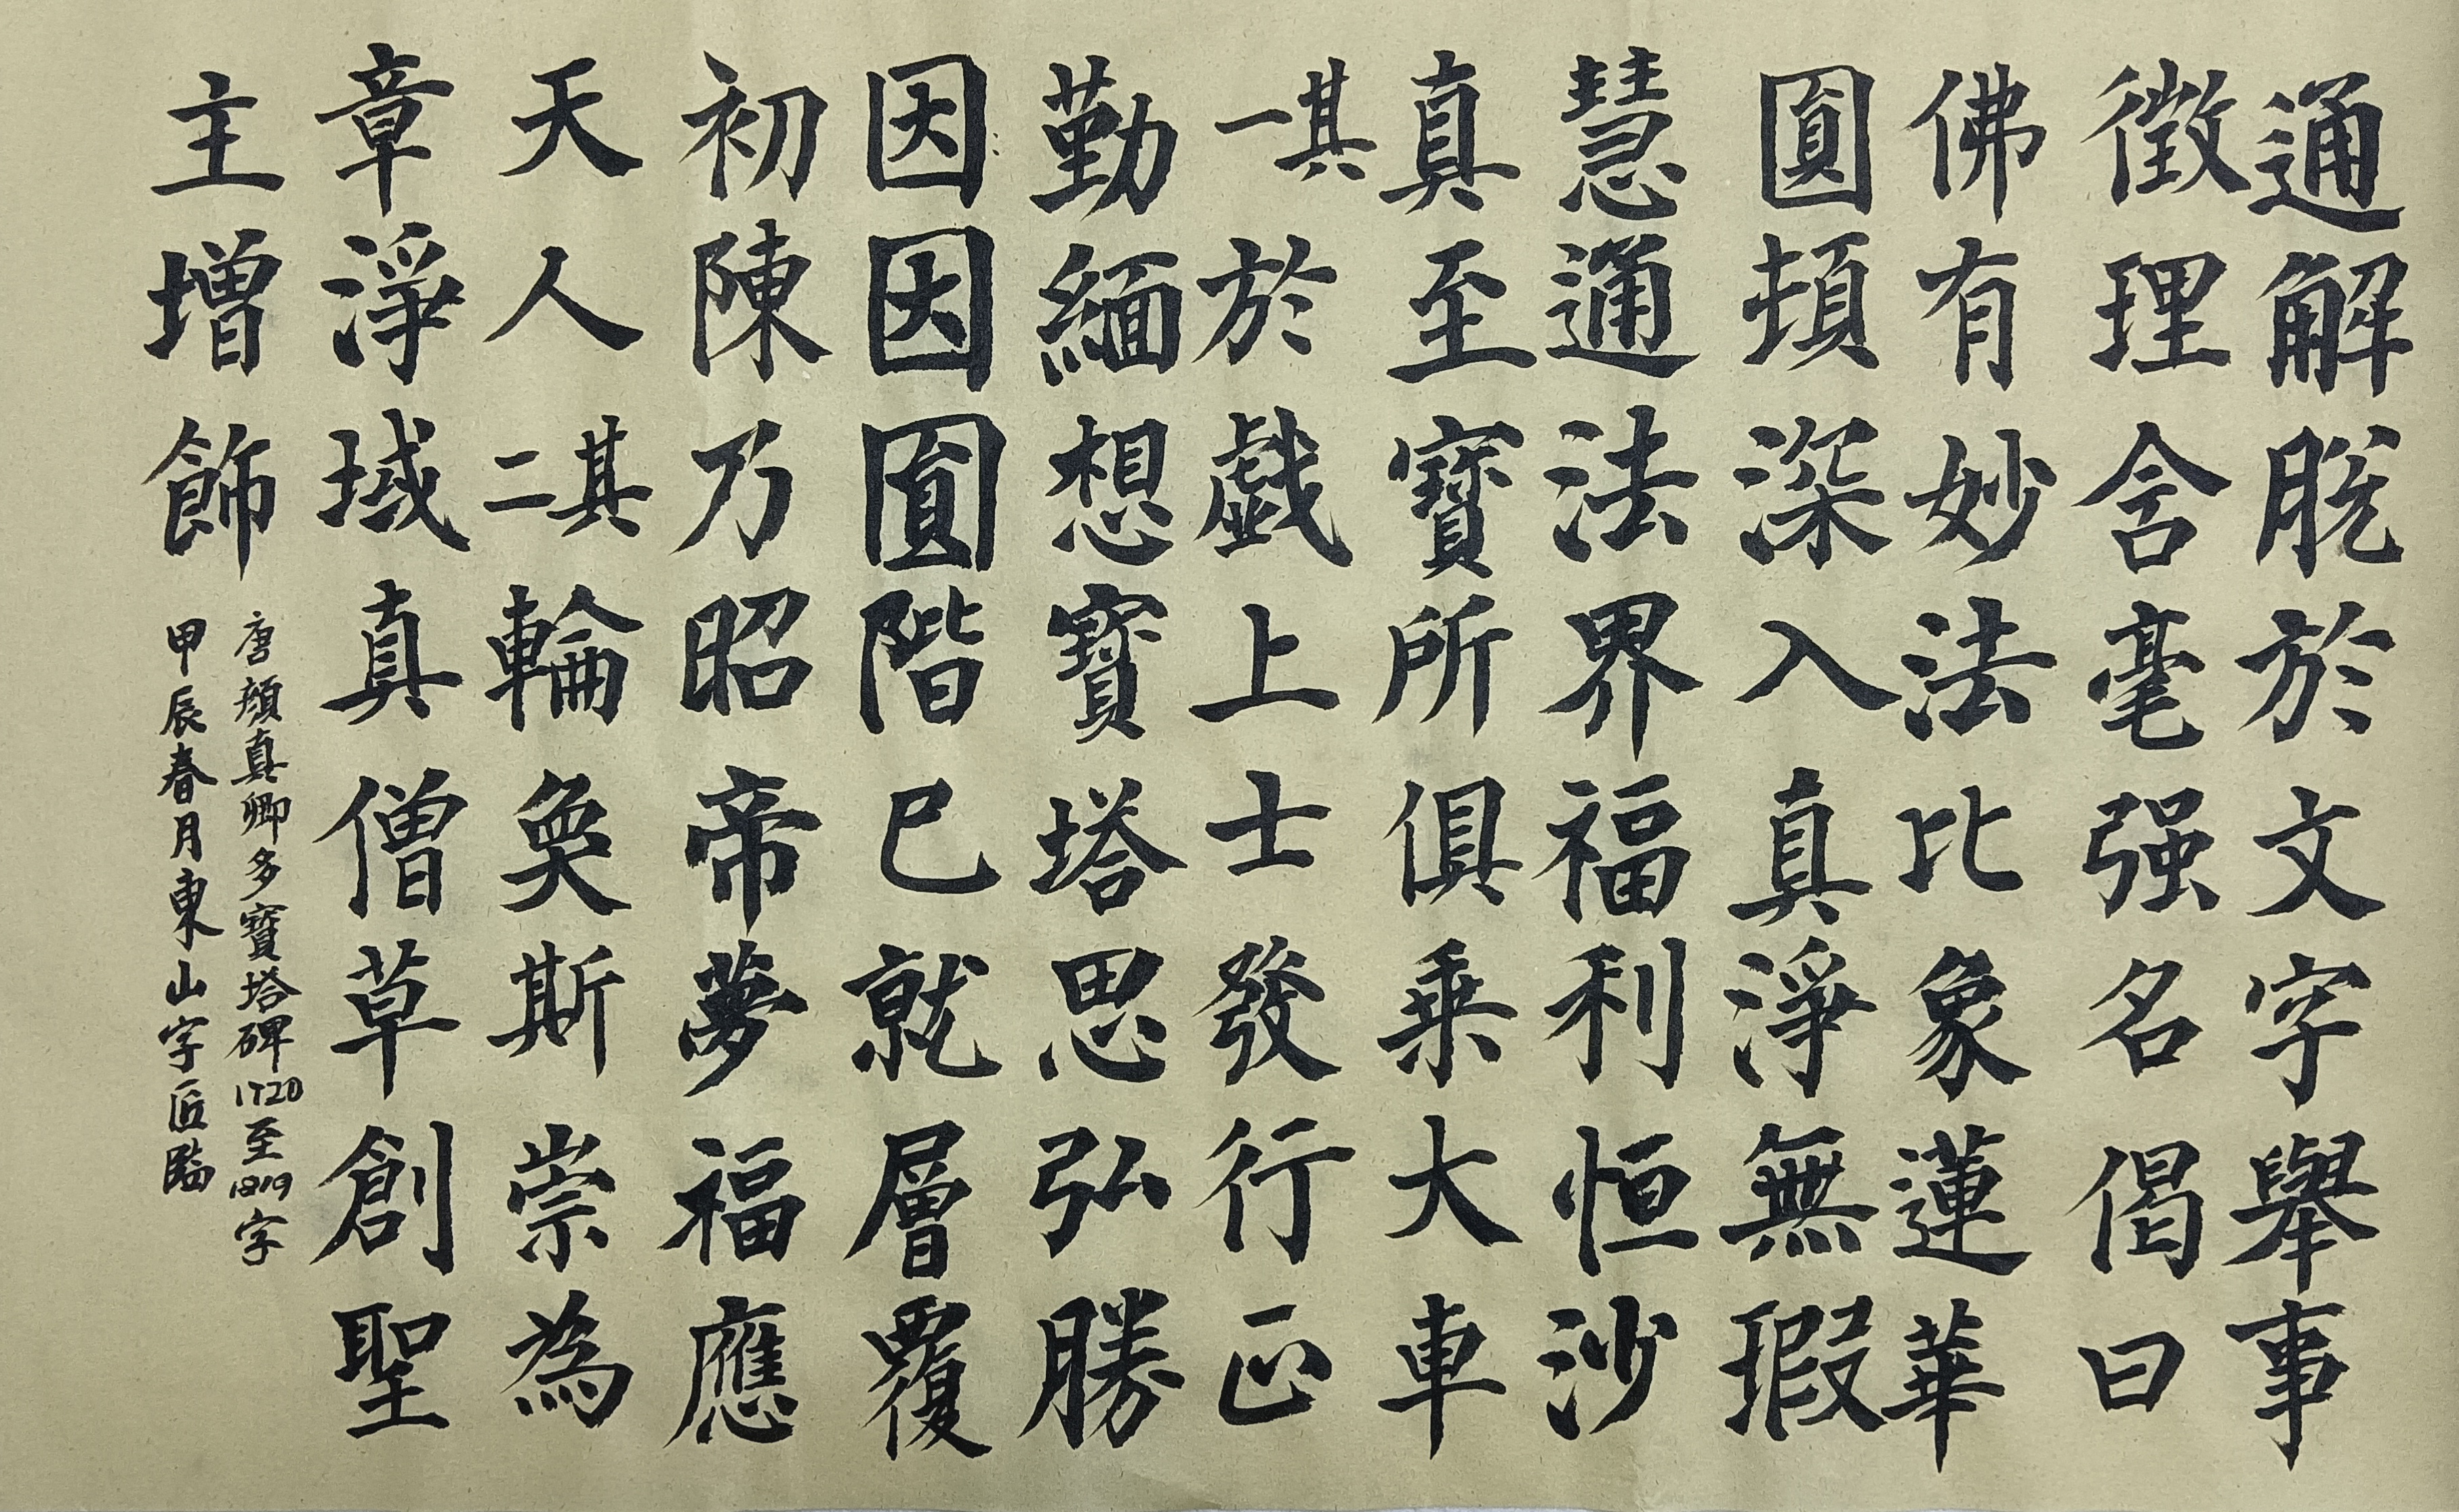 通解脫於文字舉事
徵理含毫强名偈曰
佛有妙法比象蓮華
圓頓深入真淨無瑕
慧通法界福利恒沙
真至寶所俱乗大車
其一於戯上士發行正
勤緬想寶塔思弘勝
因因圓階已就層覆
初陳乃昭帝夢福應
天人其二輪奐斯崇為
章淨域真僧草創聖
主增飾
唐顔真卿多寶塔碑1720至1819字
甲辰春月東山字匠臨